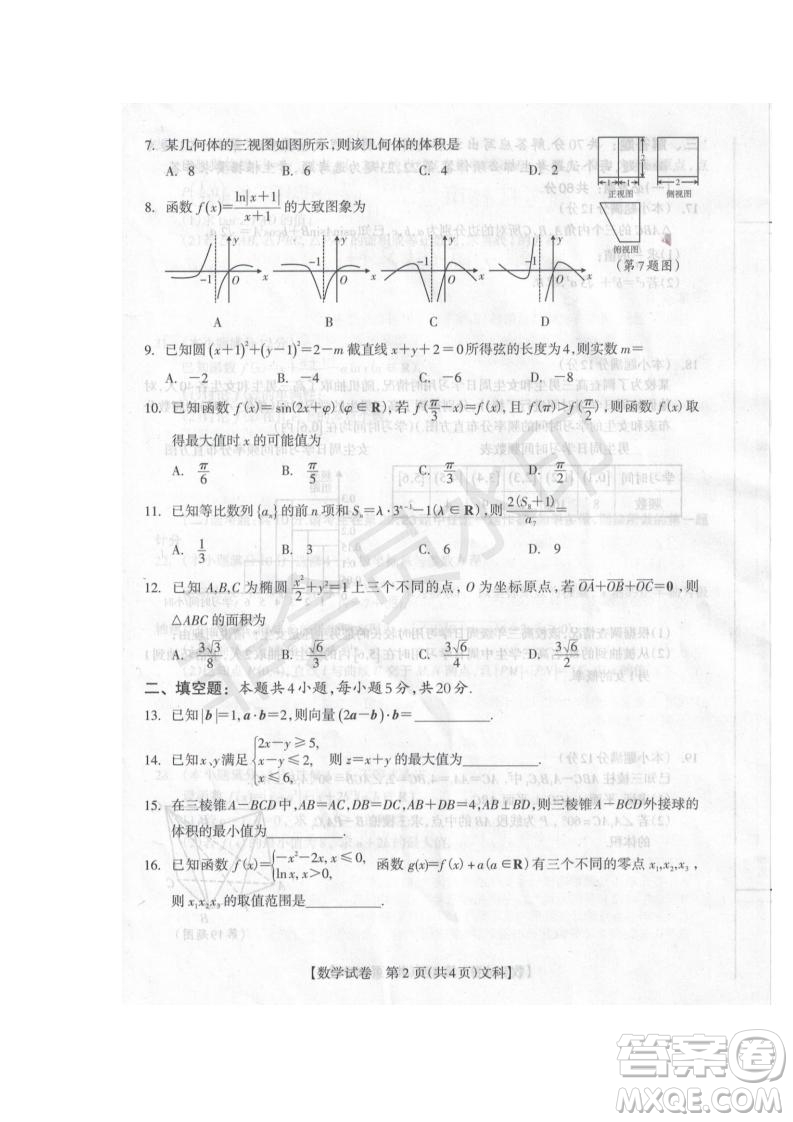 7. 某几何体的三视图如图所示,则该几何体的体积是
A. 8 B. 6 C. 4 D. 2
1 1
正视图
2
侧视图
俯视图
(第7题图)
8. 函数 f(x)=ln|x+1|/(x+1) 的大致图象为
y -1 O x
y -1 O x
y -1 O x
y -1 O x
A B C D
9. 已知圆(x+1)²+(y-1)²=2-m 截直线 x+y+2=0所得弦的长度为4,则实数 m=
A. -2 B. -4 C. -6 D. -8
10. 已知函数 f(x)= sin(2x+φ)(φ∈R),若 f(π/3-x)=f(x),且 f(π)>f(π/2),则函数 f(x)取
得最大值时 x 的可能值为
A. π/6 B. π/5 C. π/3 D. π/2
11. 已知等比数列{aₙ}的前 n 项和Sₙ=λ·3ⁿ⁻¹-1(λ∈R),则 2(S₈+1)/a₇=
A. 1/3 B. 3 C. 6 D. 9
12. 已知 A,B,C 为椭圆 x²/2+y²=1上三个不同的点, O 为坐标原点,若OA+OB+OC=0,则
△ABC的面积为
A. 3√3/8 B. √6/3 C. 3√6/4 D. 3√6/8
二、填空题:本题共4小题,每小题5分,共20分.
13. 已知|b|=1,a·b=2,则向量(2a-b)·b=__________.
14. 已知x、y满足{2x-y≥5, x-y≤2, x+2y≤ 则 z=x+y 的最大值为__________.
15. 在三棱锥A-BCD中,AB=AC,DB=DC,AB+DB=4,AB⊥BD,则三棱锥A-BCD外接球的
体积的最小值为__________.
16. 已知函数 f(x)={-x²-2x, x≤0, ln x, x>0, 函数 g(x)=f(x)+a(a∈R)有三个不同的零点 x₁,x₂,x₃,
则 x₁x₂x₃的取值范围是__________.
【数学试卷 第2页(共4页)文科】
非会员水印
答案圈